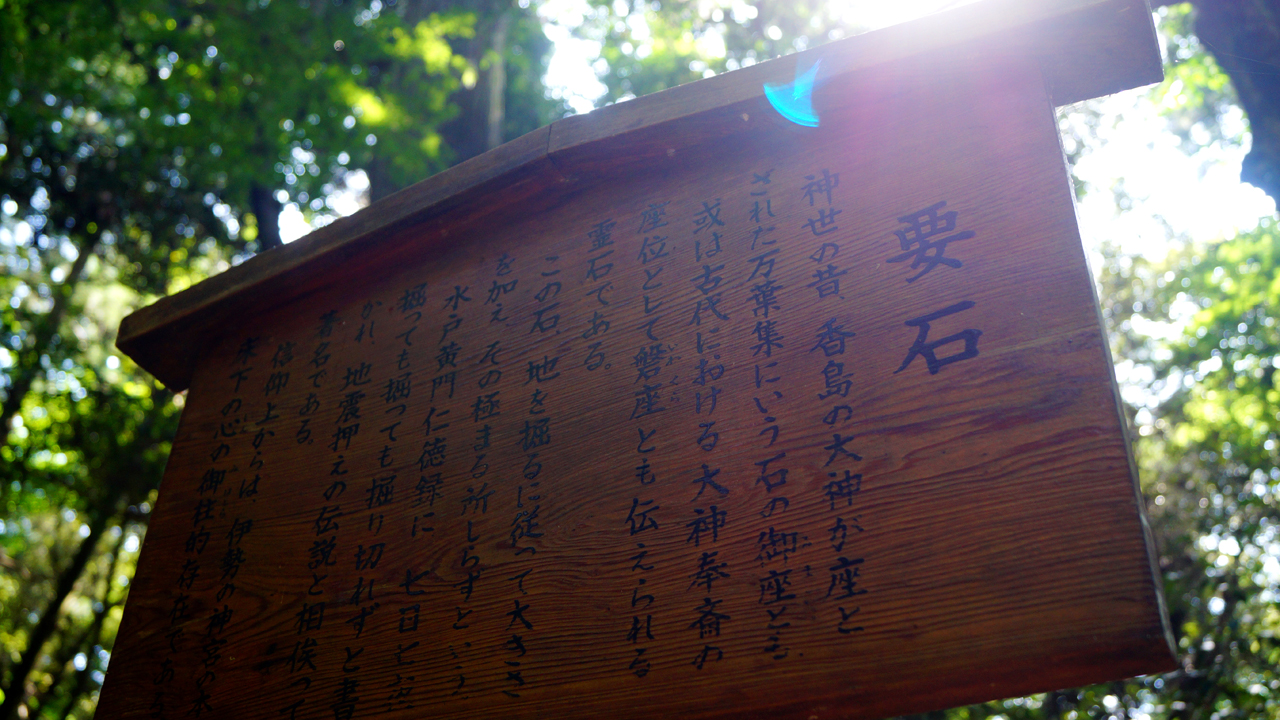 要石
神世の昔、香島の大神が座と
された万葉集にいう石の御座とも
或は古代における大神奉斎の
座位として磐座とも伝えられる
霊石である。
この石、地を掘るに従って大きさ
を加え、その極まる所しらずという
水戸黄門仁徳録に 七日七
掘っても掘っても掘り切れずと書
かれ、地震押えの伝説と相俟って
著名である。
信仰上からは 伊勢の神宮の本
床下の心の御柱的存在である